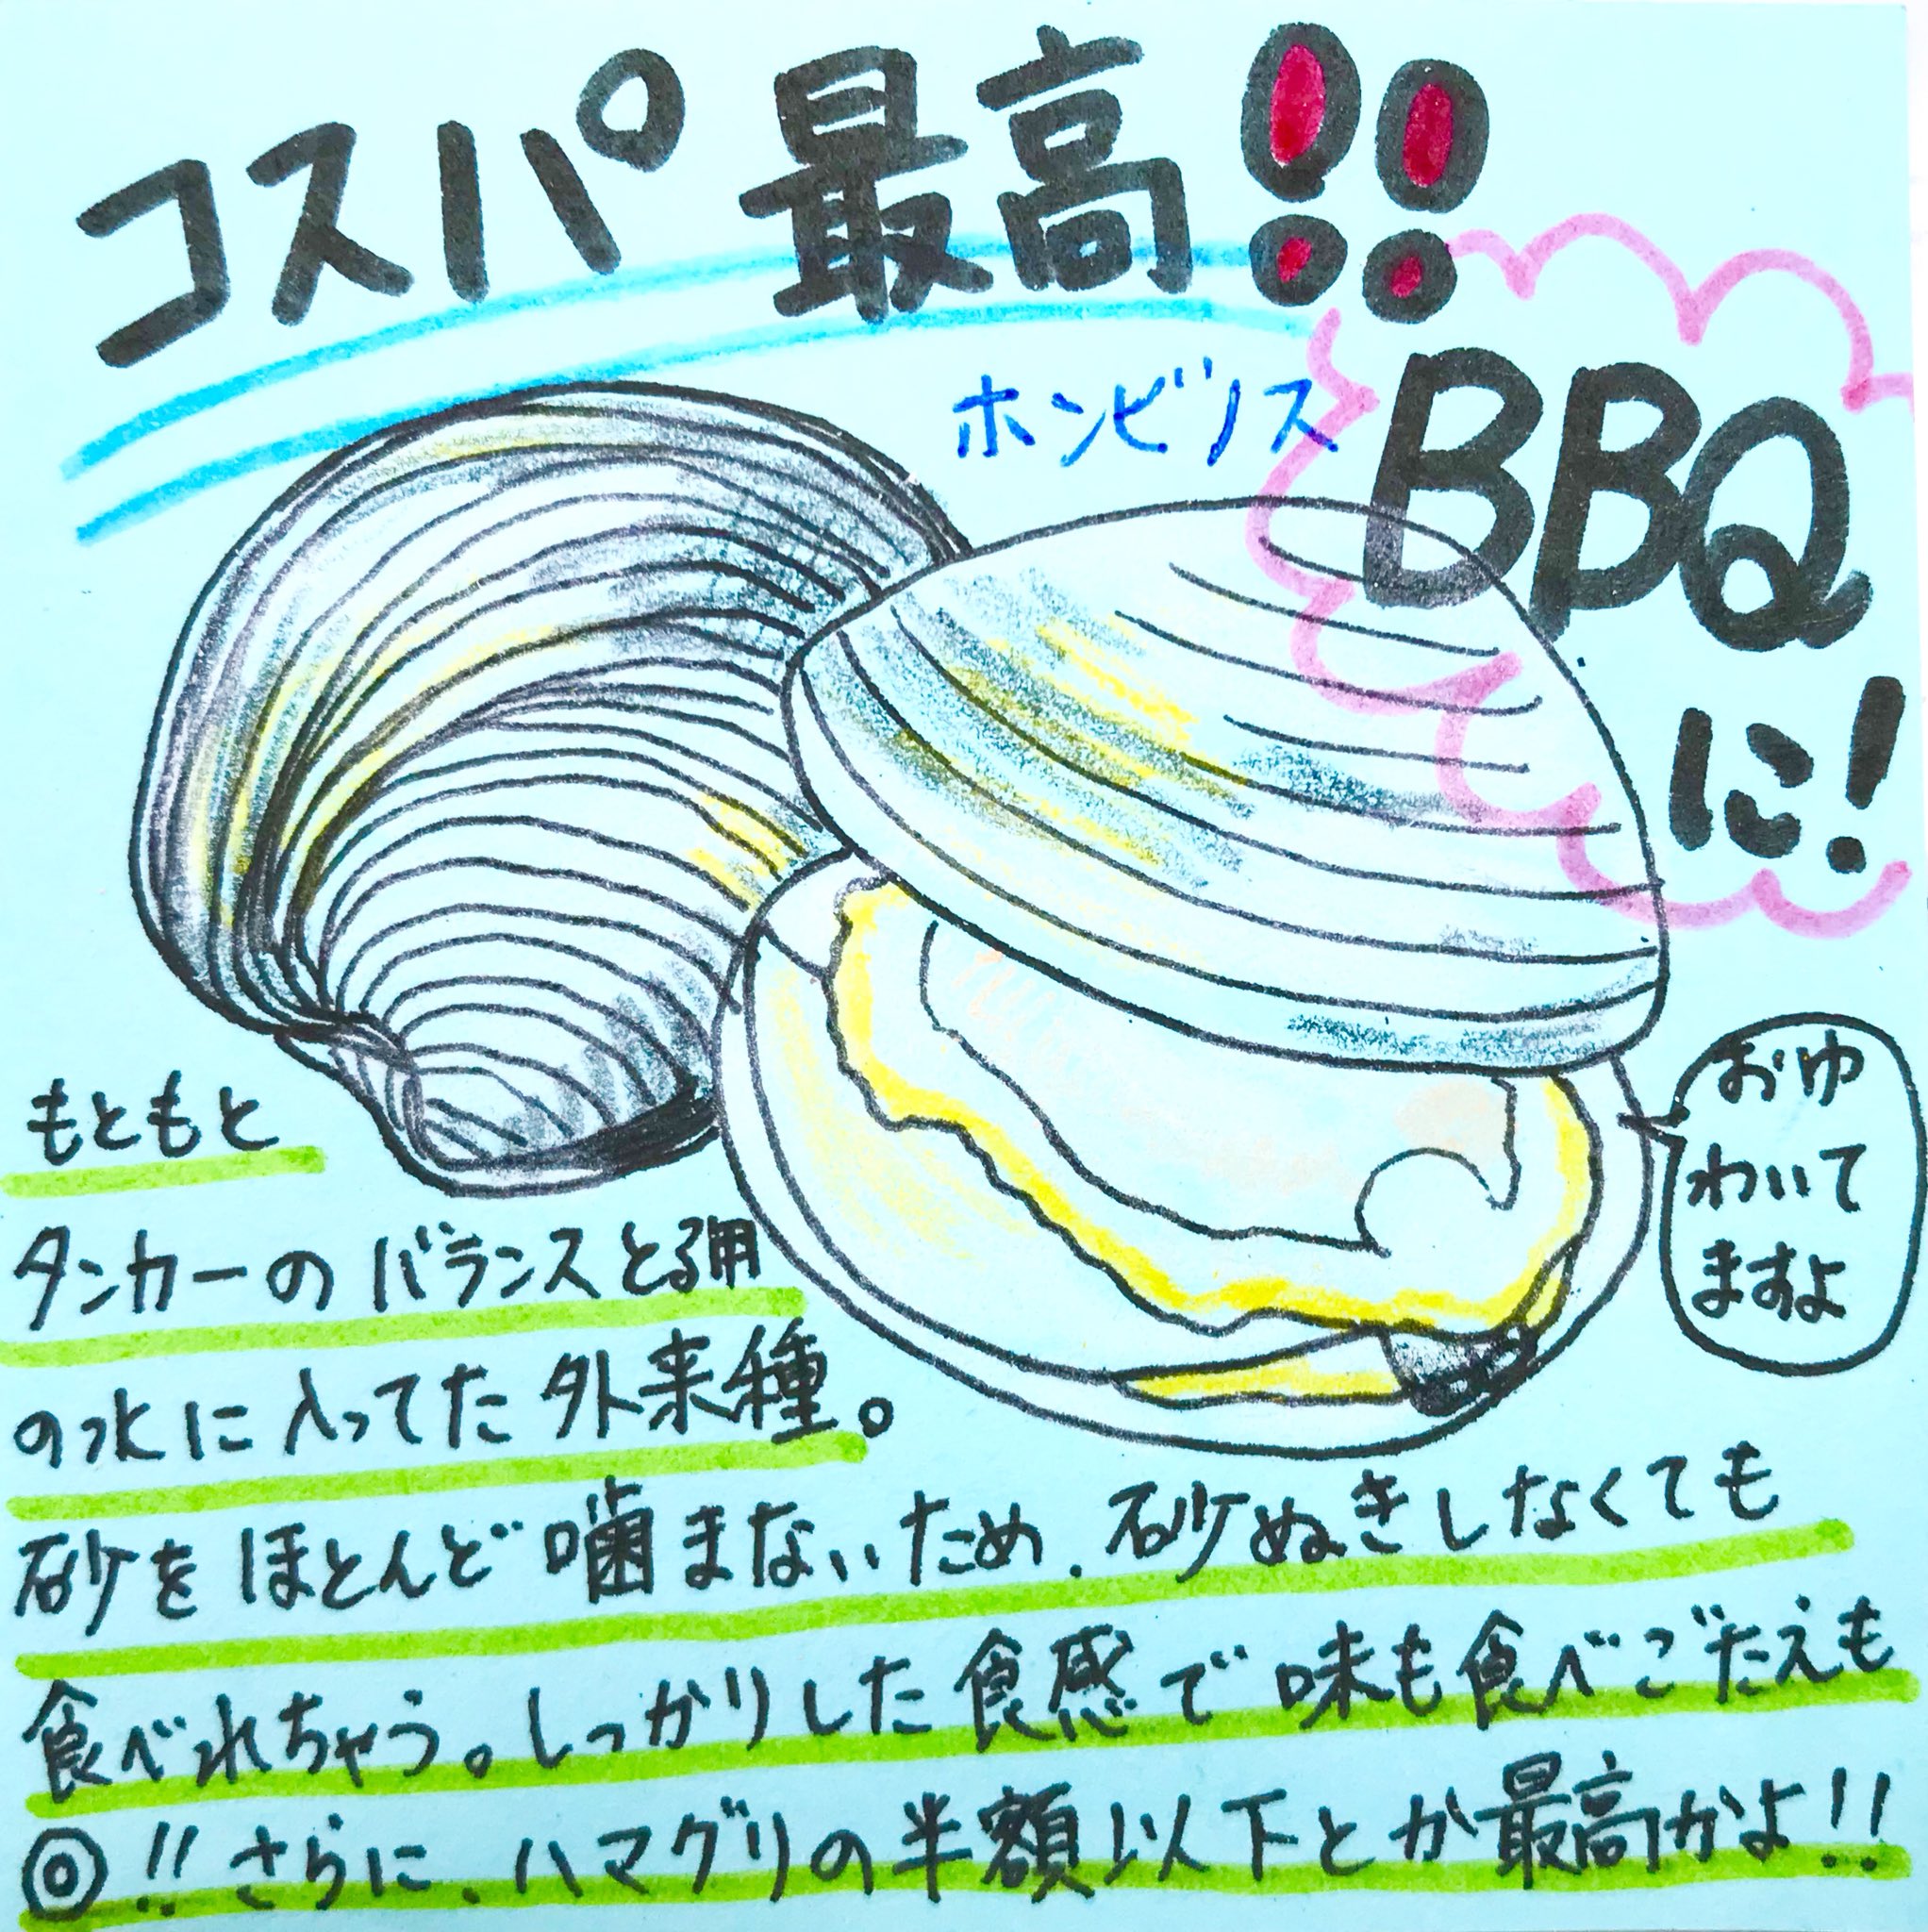 コスパ最高!!
ホンビノス
BBQ
に!
おゆ
わいて
ますよ
もともと
タンカーのバランスとる用
の水に入ってた外来種。
砂をほとんど噛まないため、砂ぬきしなくても
食べれちゃう。しっかりした食感で味も食べごたえも
◎!!さらに、ハマグリの半額以下とか最高かよ!!